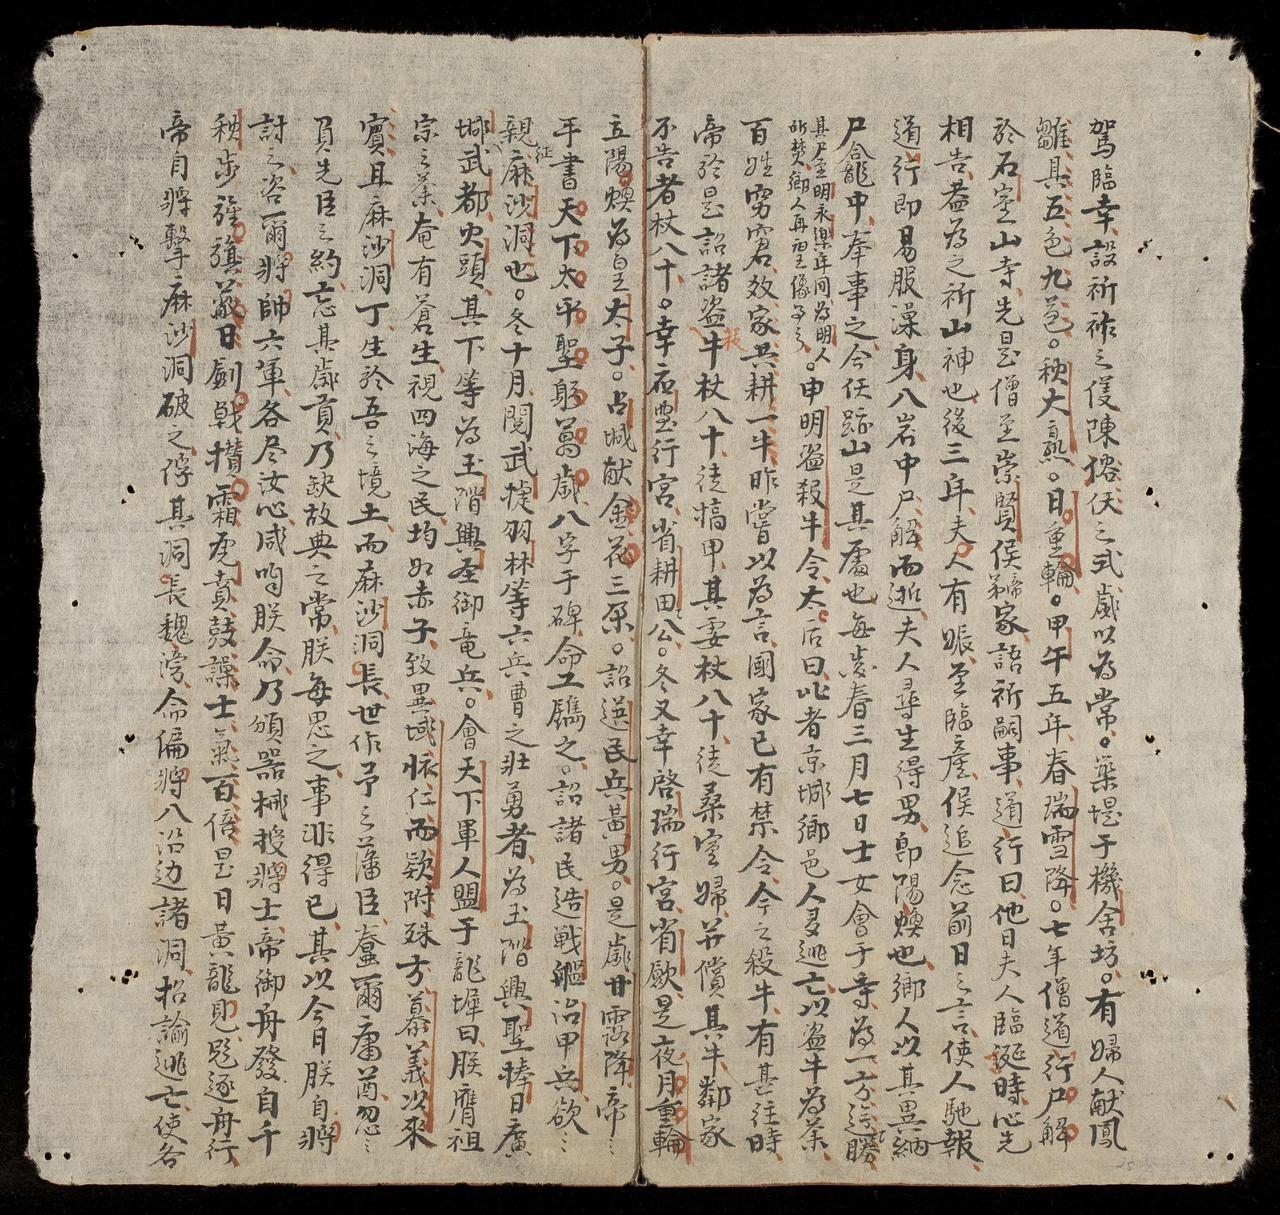 駕臨幸設祈祚之後陳俗伏之式歲以為常築堤于機舍坊有婦人献鳳
雛具五色九苞秧大熟日重輪甲午五年春瑞雪降七年僧道行尸解
於石室山寺先是僧至崇賢侯第家語祈嗣事道行曰他日夫人臨誕時必先
相告盖為之祈山神也後三年夫人有娠至臨産侯追念前日之言使人馳報
道行即易服澡身入岩中尸解而逝夫人尋生得男即陽煥也鄉人以其異納
尸龕中奉事之今佛跡山是其處也每歲春三月七日士女會于寺為一方遊勝
其尸至明永樂年间為明人
所焚鄉人再塑像事之
申明盗殺牛令太后曰比者京城鄉邑人多逃亡以盗牛為業
百姓窮窘数家共耕一牛昨嘗以為言國家已有禁令今之殺牛有甚往時
帝於是詔諸盗牛杖八十徒犒甲其妻杖八十徒桑室婦并償其牛鄰家
殺
不告者杖八十幸應豊行宮省耕田冬又幸啓瑞行宮省歛是夜月重輪
立陽煥為皇太子占城献金花三朶詔選民兵黃男是歲甘露降帝
手書天下太平聖躬萬歲八字于碑命工鐫之詔諸民造戰艦治甲兵欲
親麻沙洞也冬十月閱武捷羽林等六兵曹之壯勇者為玉階興聖捧日廣
征
城武都火頭其下等為玉階興圣御竜兵會天下軍人盟于龍墀曰朕膺祖
宗之業奄有蒼生視四海之民均如赤子致異域懷仁而欵附殊方慕義以來
賓且麻沙洞丁生於吾之境土而麻沙洞長世作予之藩臣蠢爾庸酋忽
負先臣之約忘其歲貢乃缺故典之常朕每思之事非得已其以今日朕自將
討之咨爾將帥六軍各尽汝心咸听朕命乃頒器械授將士帝御舟發自千
秋步旌旗蔽日劍戟攢霜虎賁鼓譟士氣百倍是日黃龍見飛逐舟行
帝自將擊麻沙洞破之俘其洞長魏滂命偏將入沿边諸洞招諭逃亡使各